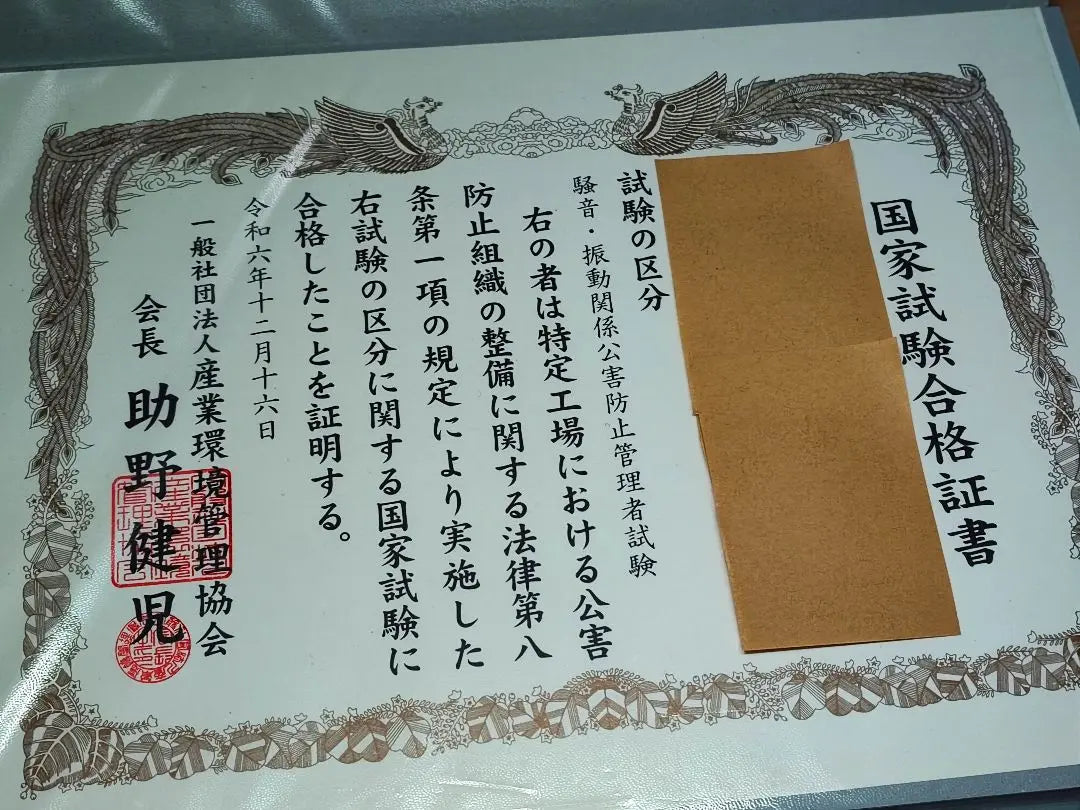 国家試験合格証書
試験の区分
騒音・振動関係公害防止管理者試験
右の者は特定工場における公害
防止組織の整備に関する法律第八
条第一項の規定により実施した
右試験の区分に関する国家試験に
合格したことを証明する。
令和六年十二月十六日
一般社団法人産業環境管理協会
会長 助野健児